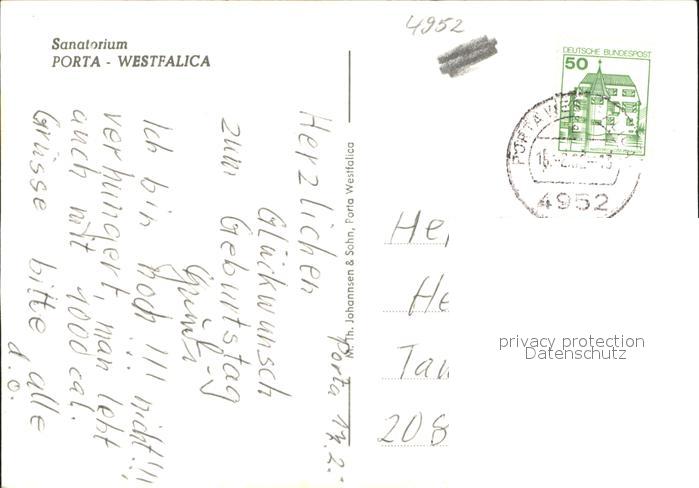 4952
Sanatorium
PORTA - WESTFALICA
DEUTSCHE BUNDESPOST
50
PORTA WES
4952
M. Th. Johannsen & Sohn, Porta Westfalica
Porta 17.2.
Herzlichen
Glückwunsch
zum Geburtstag
Ich bin noch !!! nicht!!!
verhungert, man lebt
auch mit 1000 cal.
Grüsse bitte alle
d. O.
He
He
Tau
208
privacy protection
Datenschutz